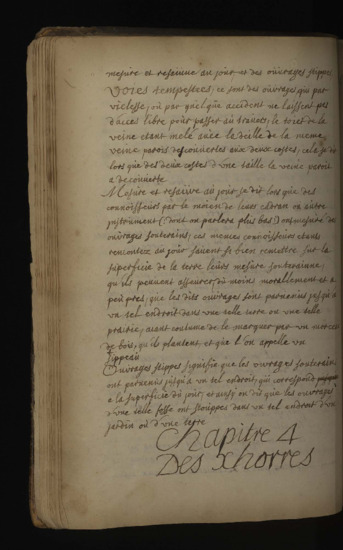 mesure et remise au jour et des ouvrages stippes
Voies tempestees; ce sont des ouvrages, qui par
vielesse, ou par quelque accident ne laissent pas
d'acces libre pour passer au travers; le bord de la
veine etant melé avec la deille de la meme
veine
lors que des deux costes d'une taille la veine paroit
a deconnette
Mesure et remise au jour, se dit lors que des
connoisseurs par le moien de leur cadran ou autre
instrument (: dont on parlera plus bas) ont mesuré des
ouvrages souterains; ces memes connoisseurs etans
remontez au jour savent si bien remettre sur la
superficie de la terre leurs mesure souterainne,
qu'ils peuvent asseurer du moins moralement et a
peu pres, que les dits ouvrages sont parvenus jusqu'a
un tel endroit dans une telle terre ou une telle
prairie; aiant coutume de le marquer par un morceau
de bois, qu'ils plantent, et que l'on appelle un
stippeau
Ouvrages stippes signifie que les ouvrages souterains
ont parvenus jusqu'a un tel endroit, qui correspond
a la superficie du jour; et ainsy on dit que les ouvrages
d'une telle fosse sont stouppes dans un tel endroit d'un
jardin ou d'une terre
Chapitre 4
Des xhorres